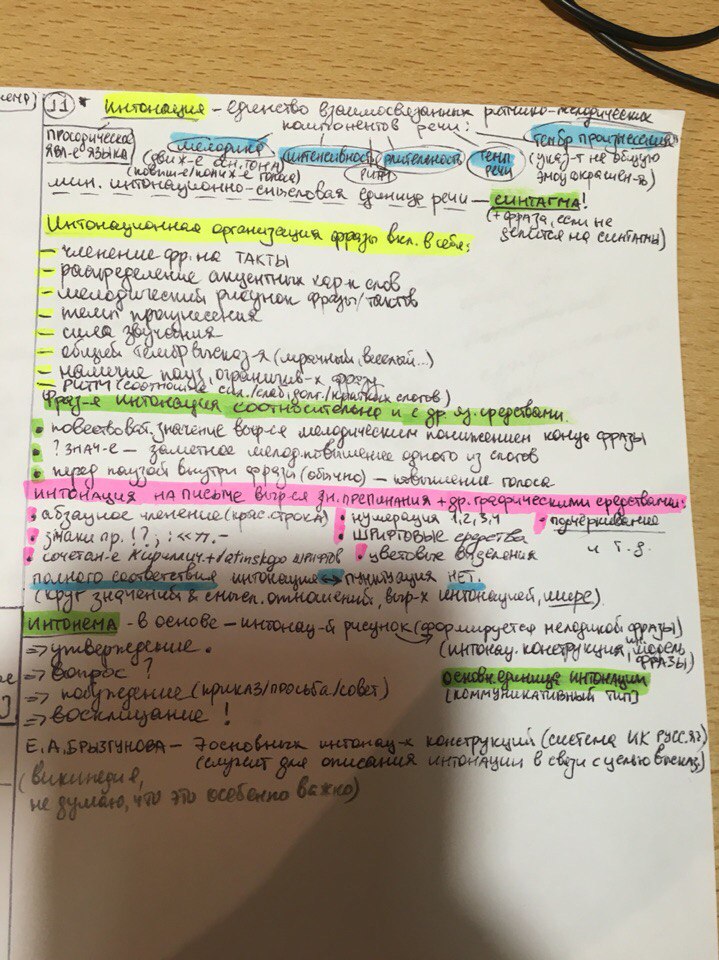 11 • Интонация – единство взаимосвязанных ритмико-мелодических
компонентов речи:
ПРОСОДИЧЕСКОЕ ЯВЛ-Е ЯЗЫКА
мелодика (движ-е осн. тона) (повыш-е/пониж-е голоса)
интенсивность
длительность
РИТМ
темп речи
тембр произнесения (указ-т не общую эмоц окрашен-я)
мин. интонационно-смысловая единица речи – СИНТАГМА!
(+ фраза, если не делится на синтагмы)
Интонационная организация фразы вкл. в себя:
– членение фр. на ТАКТЫ
– распределение акцентных хар-к слов
– мелодический рисунок фразы/тактов
– темп произнесения
– сила звучания
– общий тембр высказ-я (мрачный, веселый...)
– наличие пауз, огранич-х фразу
– РИТМ (соотнош-е сил./слаб, долг./кратких слогов)
Фраз-я интонация соотносительна и с др. яз. средствами.
• повествоват. значение выр-ся мелодическим понижением конца фразы
• ? знач-е – заметное мелод. повышение одного из слогов
• перед паузой внутри фразы (обычно) – повышение голоса
интонация на письме выр-ся зн. препинания + др. графическими средствами:
• абзацное членение (крас. строка)
• нумерация 1,2,3,4
• подчёркивание
• знаки пр. ! ? , ; : « » . –
• ШРИФТОВЫЕ средства
и т. д.
• сочетан-е Кириллич. + latinskgo шрифтов
• цветовые выделения
полного соответствия интонация ↔ пунктуация НЕТ.
(круг значений & смысл. отношений, выр-х интонацией, шире).
ИНТОНЕМА – в основе – интонац-й рисунок (формируется мелодикой фразы)
(интонац. конструкция, или модель фразы)
⇒ утверждение .
⇒ вопрос ?
⇒ побуждение (приказ/просьба/совет)
⇒ восклицание !
основн. единица интонации
(коммуникативный тип)
Е.А. БРЫЗГУНОВА – 7 основных интонац-х конструкций (система ИК РУСС. ЯЗ)
(служит для описания интонации в связи с целью высказ)
(википедия,
не думаю, что это особенно важно)